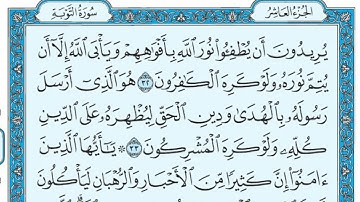 الجزء العاشر سورة التوبة
يُرِيدُونَ أَن يُطْفِـُٔوا۟ نُورَ ٱللَّهِ بِأَفْوَٰهِهِمْ وَيَأْبَى ٱللَّهُ إِلَّآ أَن
يُتِمَّ نُورَهُۥ وَلَوْ كَرِهَ ٱلْكَٰفِرُونَ ٣٢ هُوَ ٱلَّذِىٓ أَرْسَلَ
رَسُولَهُۥ بِٱلْهُدَىٰ وَدِينِ ٱلْحَقِّ لِيُظْهِرَهُۥ عَلَى ٱلدِّينِ
كُلِّهِۦ وَلَوْ كَرِهَ ٱلْمُشْرِكُونَ ٣٣ ۞ يَٰٓأَيُّهَا ٱلَّذِينَ
ءَامَنُوٓا۟ إِنَّ كَثِيرًا مِّنَ ٱلْأَحْبَارِ وَٱلرُّهْبَانِ لَيَأْكُلُونَ